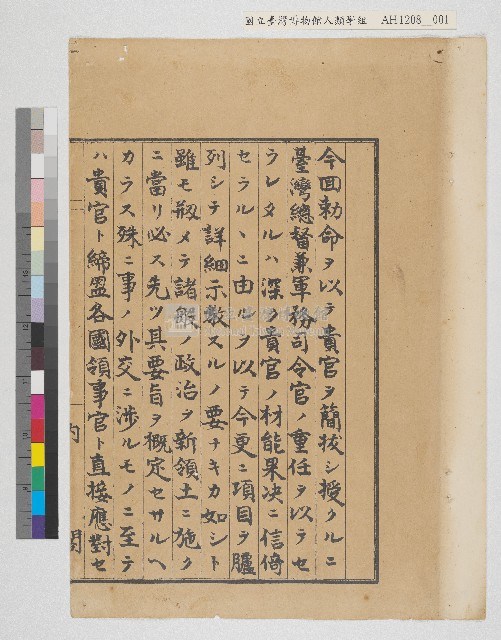 國立臺灣博物館人類學組 AH1208_001
今回勅命ヲ以テ貴官ヲ簡拔シ授クルニ
臺灣總督兼軍務司令官ノ重任ヲ以テセ
ラレタルハ深ク貴官ノ材能果決ニ信倚
セラルヽニ由ル ヲ以テ今更ニ項目ヲ臚
列シテ詳細示教スルノ要ナキカ如シト
雖モ叙メテ諸般ノ政治ヲ新領土ニ施ク
ニ當リ必ス先ツ其要旨ヲ概定セサルヘ
カラス殊ニ事ノ外交ニ渉ルモノニ至テ
ハ貴官ト締盟各國領事官ト直接應對セ
內 閣